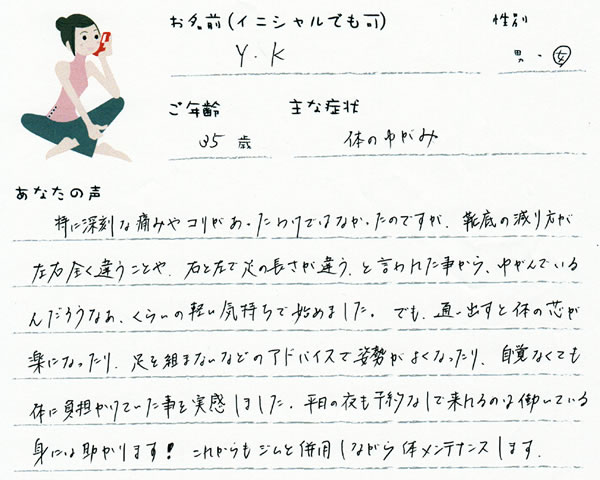 お名前(イニシャルでも可)
性別
Y.K
男・女
ご年齢
主な症状
35歳
体のゆがみ
あなたの声
特に深刻な痛みやコリがあったわけではなかったのですが、靴底の減り方が
左右全く違うことや、右と左で足の長さが違う、と言われた事から、ゆがんでいる
んだろうなあ、くらいの軽い気持ちで始めました。でも、通い出すと体の芯が
楽になったり、足を組まないなどのアドバイスで姿勢がよくなったり、自覚なくても
体に負担かけていた事を実感しました。平日の夜も予約なしで来れるのは働いている
身には助かります! これからもジムと併用しながら体メンテナンスします.